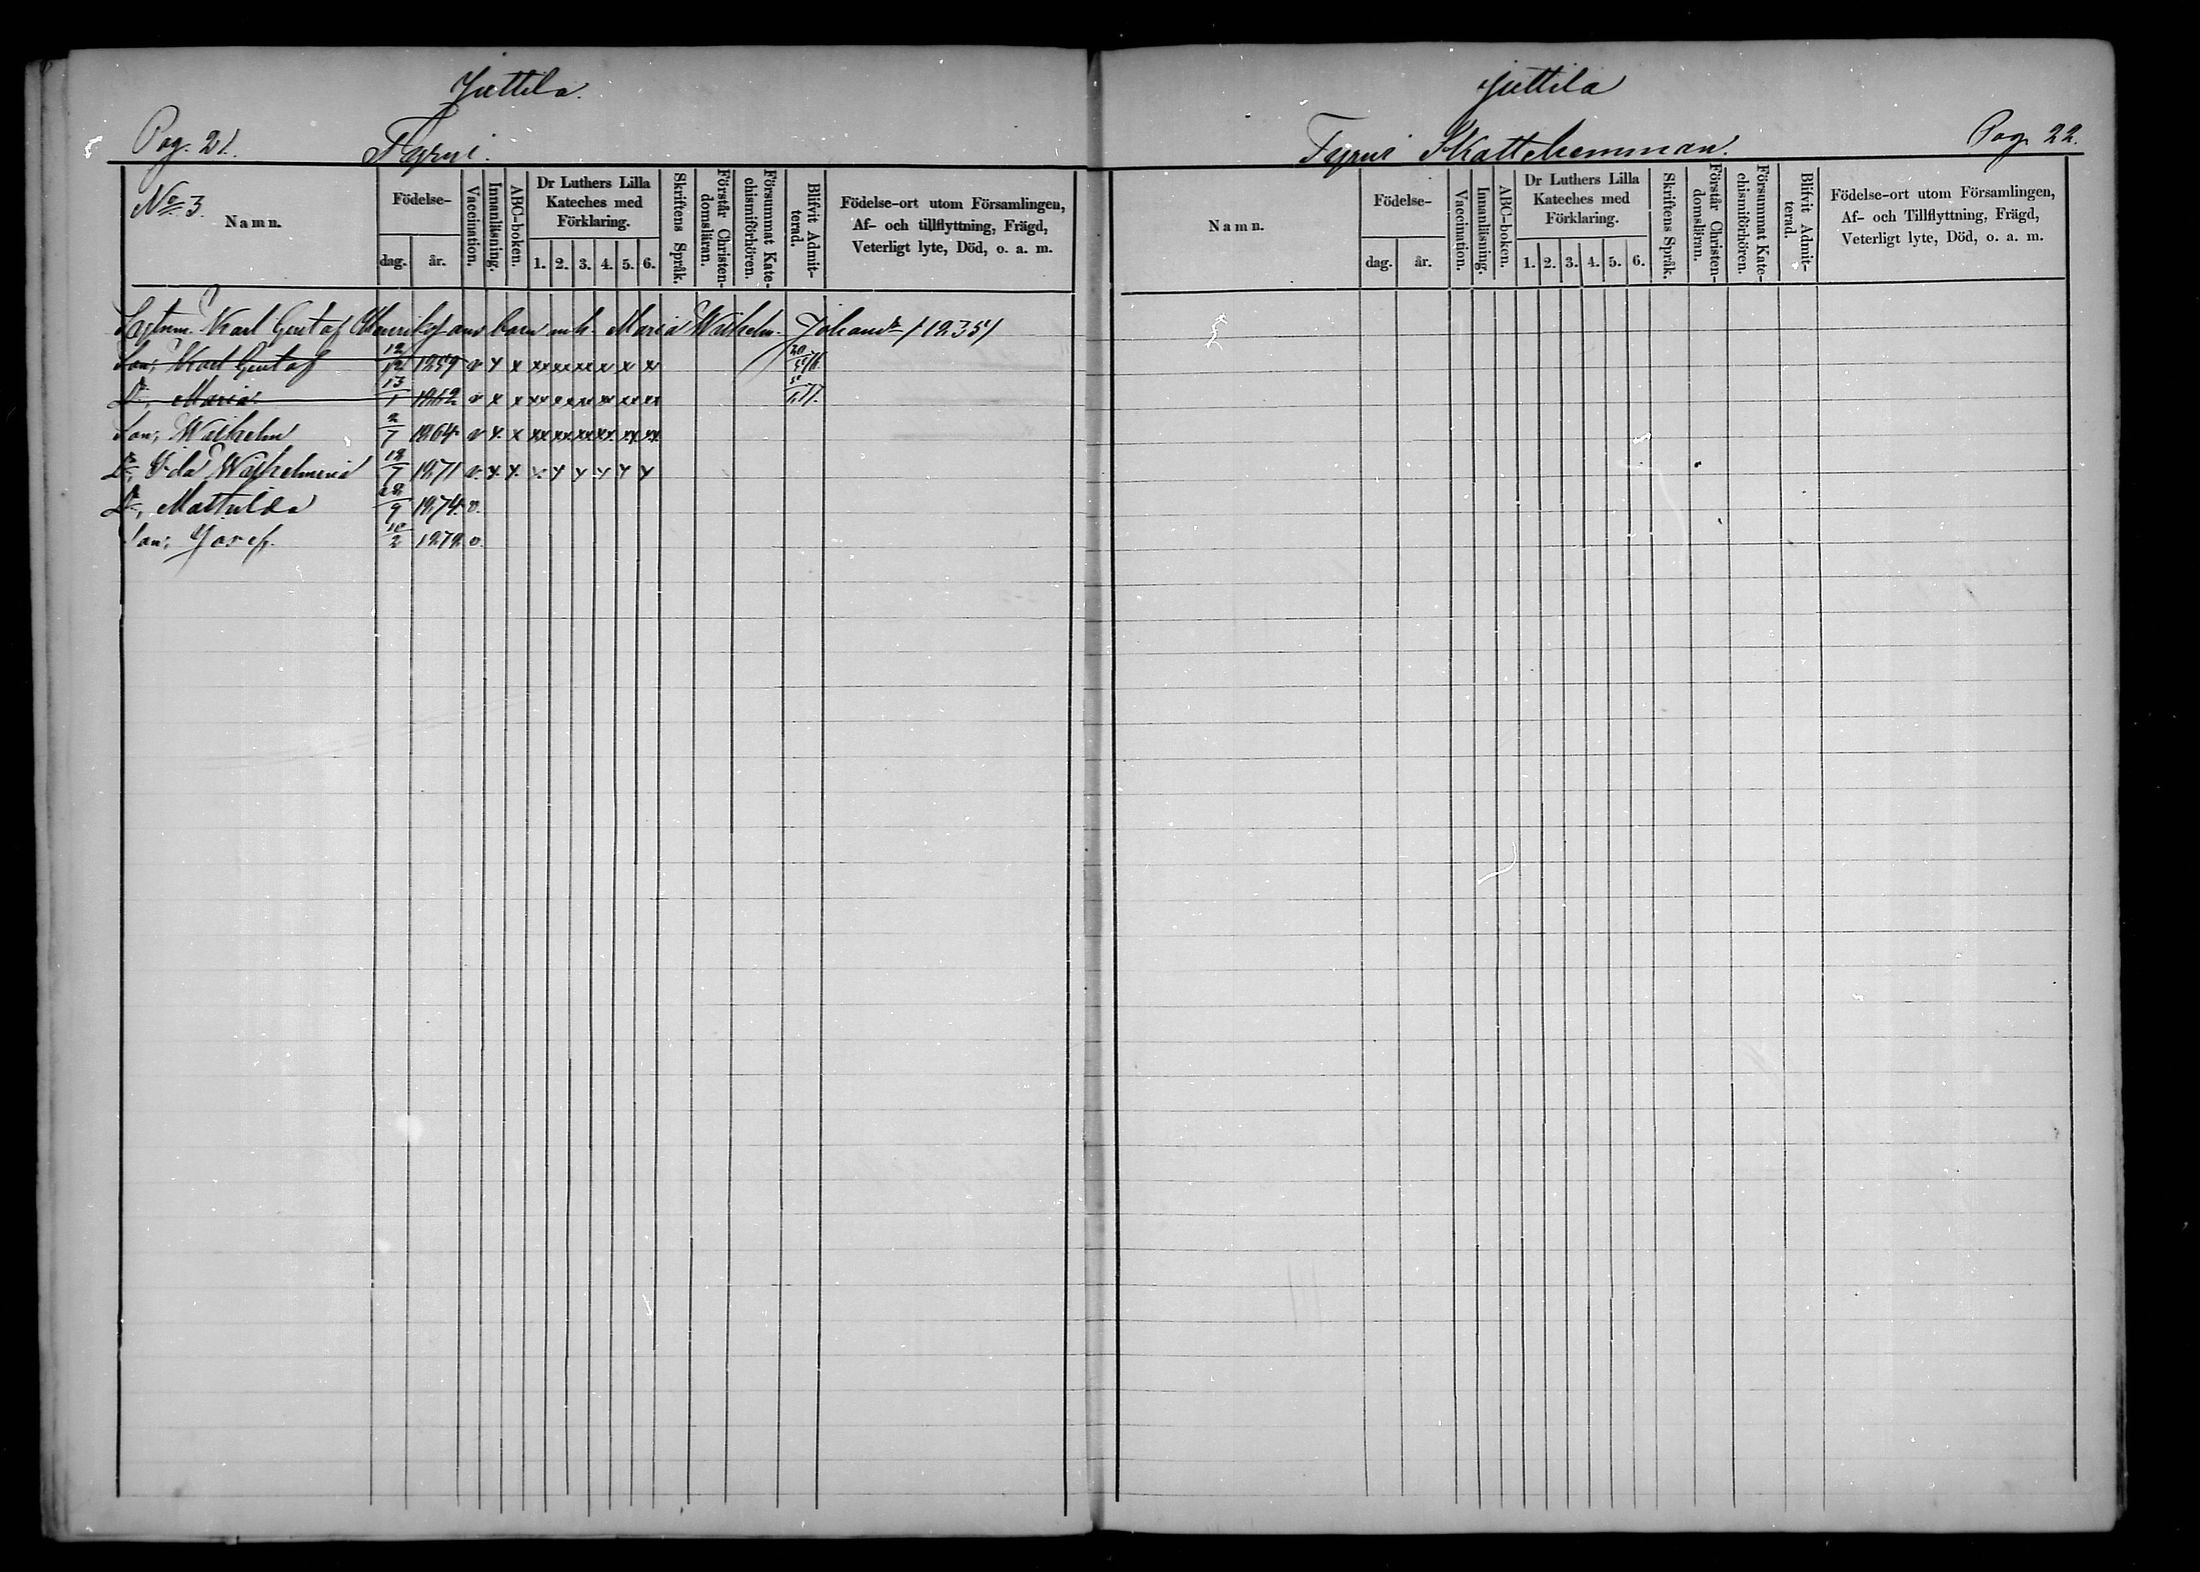 Juttila.
Pag. 21. Tyrni.
No 3.
Namn.
Födelse-
dag. år.
Vaccination.
Innanläsning.
ABC-boken.
Dr Luthers Lilla
Kateches med
Förklaring.
1. 2. 3. 4. 5. 6.
Skriftens Språk.
Förstår Christen-
domsläran.
Försummat Kate-
chismiförhören.
Blifvit Admit-
terad.
Födelse-ort utom Församlingen,
Af- och tillflyttning, Frägd,
Veterligt lyte, Död, o. a. m.
Karl Gustaf Henrikssons barn m. h. Maria Wilhelm. Johansdr
Son, Karl Gustaf 12/12 1859 v x x xx xx xx x x x
Dr, Maria 13/1 1862 v x x xx x xx xx xx xx
Son, Wilhelm 2/7 1864 v x x xx xx xx xx xx xx
Dr, Ida Wilhelmina 12/7 1871 v. x x x x x x x x
Dr, Mathilda 28/9 1874 v.
Son, Josef. 10/2 1878 v.
Juttila
Tyrni Skattehemman. Pag. 22.
Namn.
Födelse-
dag. år.
Vaccination.
Innanläsning.
ABC-boken.
Dr Luthers Lilla
Kateches med
Förklaring.
1. 2. 3. 4. 5. 6.
Skriftens Språk.
Förstår Christen-
domsläran.
Försummat Kate-
chismiförhören.
Blifvit Admit-
terad.
Födelse-ort utom Församlingen,
Af- och Tillflyttning, Frägd,
Veterligt lyte, Död, o. a. m.